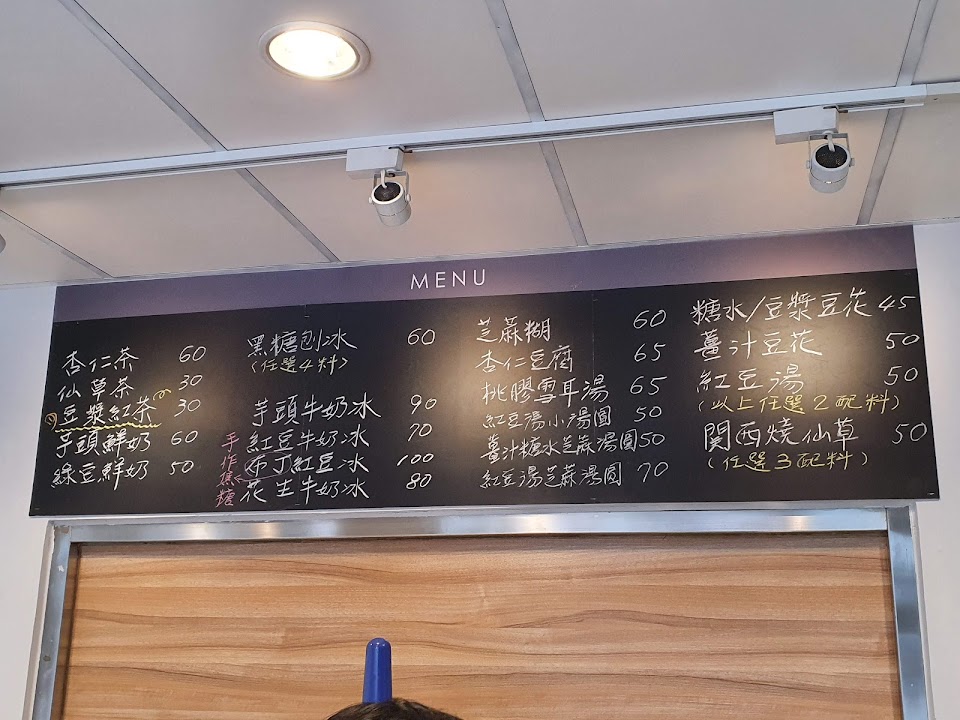 MENU
杏仁茶 60
仙草茶 30
豆漿紅茶 30
芋頭鮮奶 60
綠豆鮮奶 50
黑糖刨冰 60
(任選4料)
芋頭牛奶冰 90
紅豆牛奶冰 70
布丁紅豆冰 100
花生牛奶冰 80
手作焦糖
芝蔴糊 60
杏仁豆腐 65
桃膠雪耳湯 65
紅豆湯小湯圓 50
薑汁糖水芝蔴湯圓 50
紅豆湯芝蔴湯圓 70
糖水/豆漿豆花 45
薑汁豆花 50
紅豆湯 50
(以上任選2配料)
関西燒仙草 50
(任選3配料)